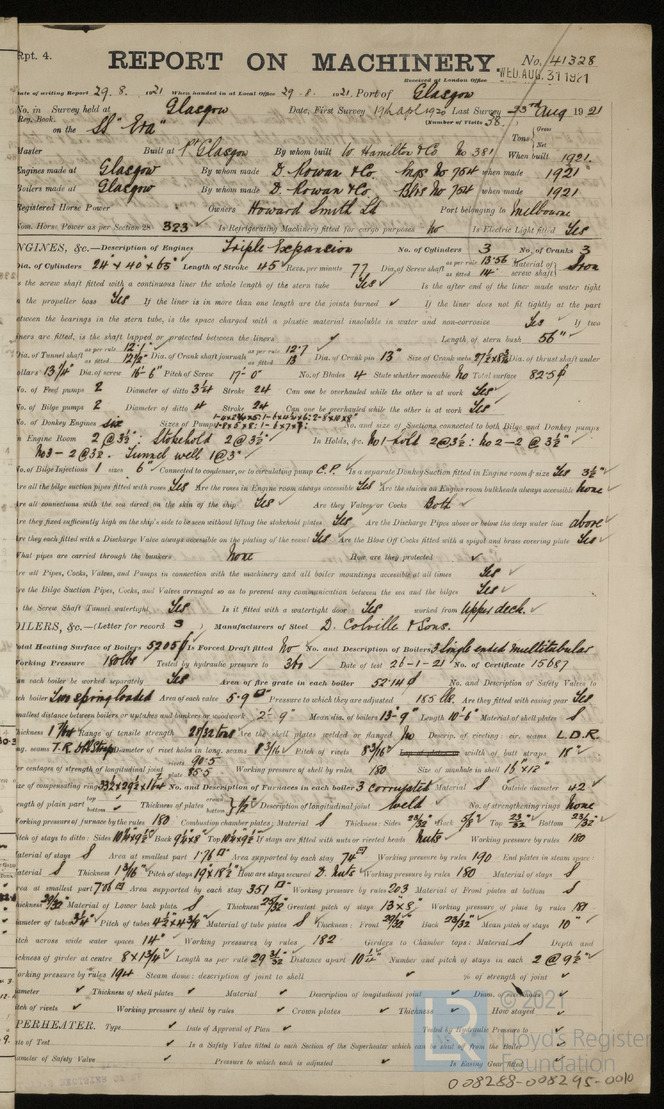 Rpt. 4.
REPORT ON MACHINERY
No. 41328
Received at London Office WED. AUG. 31 1921
Date of writing Report 29.8. 1921 When handed in at Local Office 29.8.1921. Port of Glasgow
No. in Survey held at Glasgow Date, First Survey 19th Apl 1920 Last Survey 23rd Aug 1921
Reg. Book. (Number of Visits 58.)
on the SS "Era" Tons Gross Net
Master Built at Pt Glasgow By whom built W Hamilton & Co. No 381 When built 1921.
Engines made at Glasgow By whom made D. Rowan & Co. Engs No 754 when made 1921
Boilers made at Glasgow By whom made D. Rowan & Co. Blrs No 754 when made 1921
Registered Horse Power Owners Howard Smith Ld Port belonging to Melbourne
Nom. Horse Power as per Section 28 323 Is Refrigerating Machinery fitted for cargo purposes No Is Electric Light fitted Yes
ENGINES, &c.—Description of Engines Triple Expansion No. of Cylinders 3 No. of Cranks 3
Dia. of Cylinders 24" x 40" x 65" Length of Stroke 45" Revs. per minute 77 Dia. of Screw shaft as per rule 13.56 as fitted 14" Material of screw shaft Iron
Is the screw shaft fitted with a continuous liner the whole length of the stern tube Yes Is the after end of the liner made water tight
in the propeller boss Yes If the liner is in more than one length are the joints burned ✓ If the liner does not fit tightly at the part
between the bearings in the stern tube, is the space charged with a plastic material insoluble in water and non-corrosive Yes If two
liners are fitted, is the shaft lapped or protected between the liners ✓ Length of stern bush 56"
Dia. of Tunnel shaft as per rule 12.1 as fitted Dia. of Crank shaft journals as per rule 12.7 as fitted 13 Dia. of Crank pin 13" Size of Crank webs Dia. of thrust shaft under
collars 13 1/4" Dia. of screw 16-6" Pitch of Screw 17-0" No. of Blades 4 State whether moveable No Total surface 82.5
No. of Feed pumps 2 Diameter of ditto 3 1/4 Stroke 24 Can one be overhauled while the other is at work Yes
No. of Bilge pumps 2 Diameter of ditto 4 Stroke 24 Can one be overhauled while the other is at work Yes
No. of Donkey Engines six Sizes of Pumps No. and size of Suctions connected to both Bilge and Donkey pumps
In Engine Room 2 @ 3½": Stokehold 2 @ 3½" In Holds, &c. No1 hold 2 @ 3½: No 2 - 2 @ 3½"
No 3 - 2 @ 3½. Tunnel well 1 @ 3"
No. of Bilge Injections 1 sizes 6" Connected to condenser, or to circulating pump C.P. Is a separate Donkey Suction fitted in Engine room & size Yes 3½"
Are all the bilge suction pipes fitted with roses Yes Are the roses in Engine room always accessible Yes Are the sluices on Engine room bulkheads always accessible None
Are all connections with the sea direct on the skin of the ship Yes Are they Valves or Cocks Both
Are they fixed sufficiently high on the ship's side to be seen without lifting the stokehold plates Yes Are the Discharge Pipes above or below the deep water line above
Are they each fitted with a Discharge Valve always accessible on the plating of the vessel Yes Are the Blow Off Cocks fitted with a spigot and brass covering plate Yes
What pipes are carried through the bunkers None How are they protected ✓
Are all Pipes, Cocks, Valves, and Pumps in connection with the machinery and all boiler mountings accessible at all times Yes
Are the Bilge Suction Pipes, Cocks, and Valves arranged so as to prevent any communication between the sea and the bilges Yes
Is the Screw Shaft Tunnel watertight Yes Is it fitted with a watertight door Yes worked from Upper deck.
BOILERS, &c.—(Letter for record S) Manufacturers of Steel D. Colville & Sons.
Total Heating Surface of Boilers 5205 Is Forced Draft fitted No No. and Description of Boilers 3 Single ended Multitubular
Working Pressure 180 lbs Tested by hydraulic pressure to 360 Date of test 26-1-21 No. of Certificate 15687
Can each boiler be worked separately Yes Area of fire grate in each boiler 52.14 No. and Description of Safety Valves to
each boiler Two spring loaded Area of each valve 5.9 Pressure to which they are adjusted 185 lb. Are they fitted with easing gear Yes
Smallest distance between boilers or uptakes and bunkers or woodwork 2'-9" Mean dia. of boilers 13'-9" Length 10'-6" Material of shell plates S
Thickness Range of tensile strength 28/32 tons Are the shell plates welded or flanged No Descrip. of riveting: cir. seams L.D.R.
long. seams T.R. Diameter of rivet holes in long. seams Pitch of rivets 8 3/16 width of butt straps 18"
Per centages of strength of longitudinal joint rivets 90.5 plate 85.5 Working pressure of shell by rules 180 Size of manhole in shell 16" x 12"
Size of compensating ring No. and Description of Furnaces in each boiler 3 corrugated Material S Outside diameter 42
Length of plain part top bottom Thickness of plates crown bottom Description of longitudinal joint Weld No. of strengthening rings None
Working pressure of furnace by the rules 180 Combustion chamber plates: Material S Thickness: Sides 23/32 Back 5/8 Top 23/32 Bottom 23/32
Pitch of stays to ditto: Sides Back 9 1/4 x 8 Top If stays are fitted with nuts or riveted heads Nuts Working pressure by rules 180
Material of stays S Area at smallest part 1.76 Area supported by each stay 74 Working pressure by rules 190 End plates in steam space:
Material S Thickness 1 3/16 Pitch of stays 19 x 18½ How are stays secured D. Nuts Working pressure by rules 180 Material of stays S
Area at smallest part 7.06 Area supported by each stay 351 Working pressure by rules 203 Material of Front plates at bottom S
Thickness Material of Lower back plate S Thickness Greatest pitch of stays 13 x 8 Working pressure of plate by rules 181
Diameter of tubes 3¼" Pitch of tubes Material of tube plates S Thickness: Front Back 23/32 Mean pitch of stays 10"
Pitch across wide water spaces 14" Working pressures by rules 182 Girders to Chamber tops: Material S Depth and
thickness of girder at centre 8 x 1 3/4 Length as per rule 29 31/32 Distance apart 10¼ Number and pitch of stays in each 2 @ 9½"
Working pressure by rules 194 Steam dome: description of joint to shell ✓ % of strength of joint ✓
Diameter ✓ Thickness of shell plates ✓ Material ✓ Description of longitudinal joint ✓ Diam. of rivet holes
Pitch of rivets ✓ Working pressure of shell by rules ✓ Crown plates ✓ Thickness ✓ How stayed ✓
SUPERHEATER. Type ✓ Date of Approval of Plan ✓ Tested by Hydraulic Pressure to
Date of Test ✓ Is a Safety Valve fitted to each Section of the Superheater which can be shut off from the Boiler
Diameter of Safety Valve ✓ Pressure to which each is adjusted ✓ Is Easing Gear fitted ✓
© 2021
Lloyd's Register
Foundation
008288-008295-0010